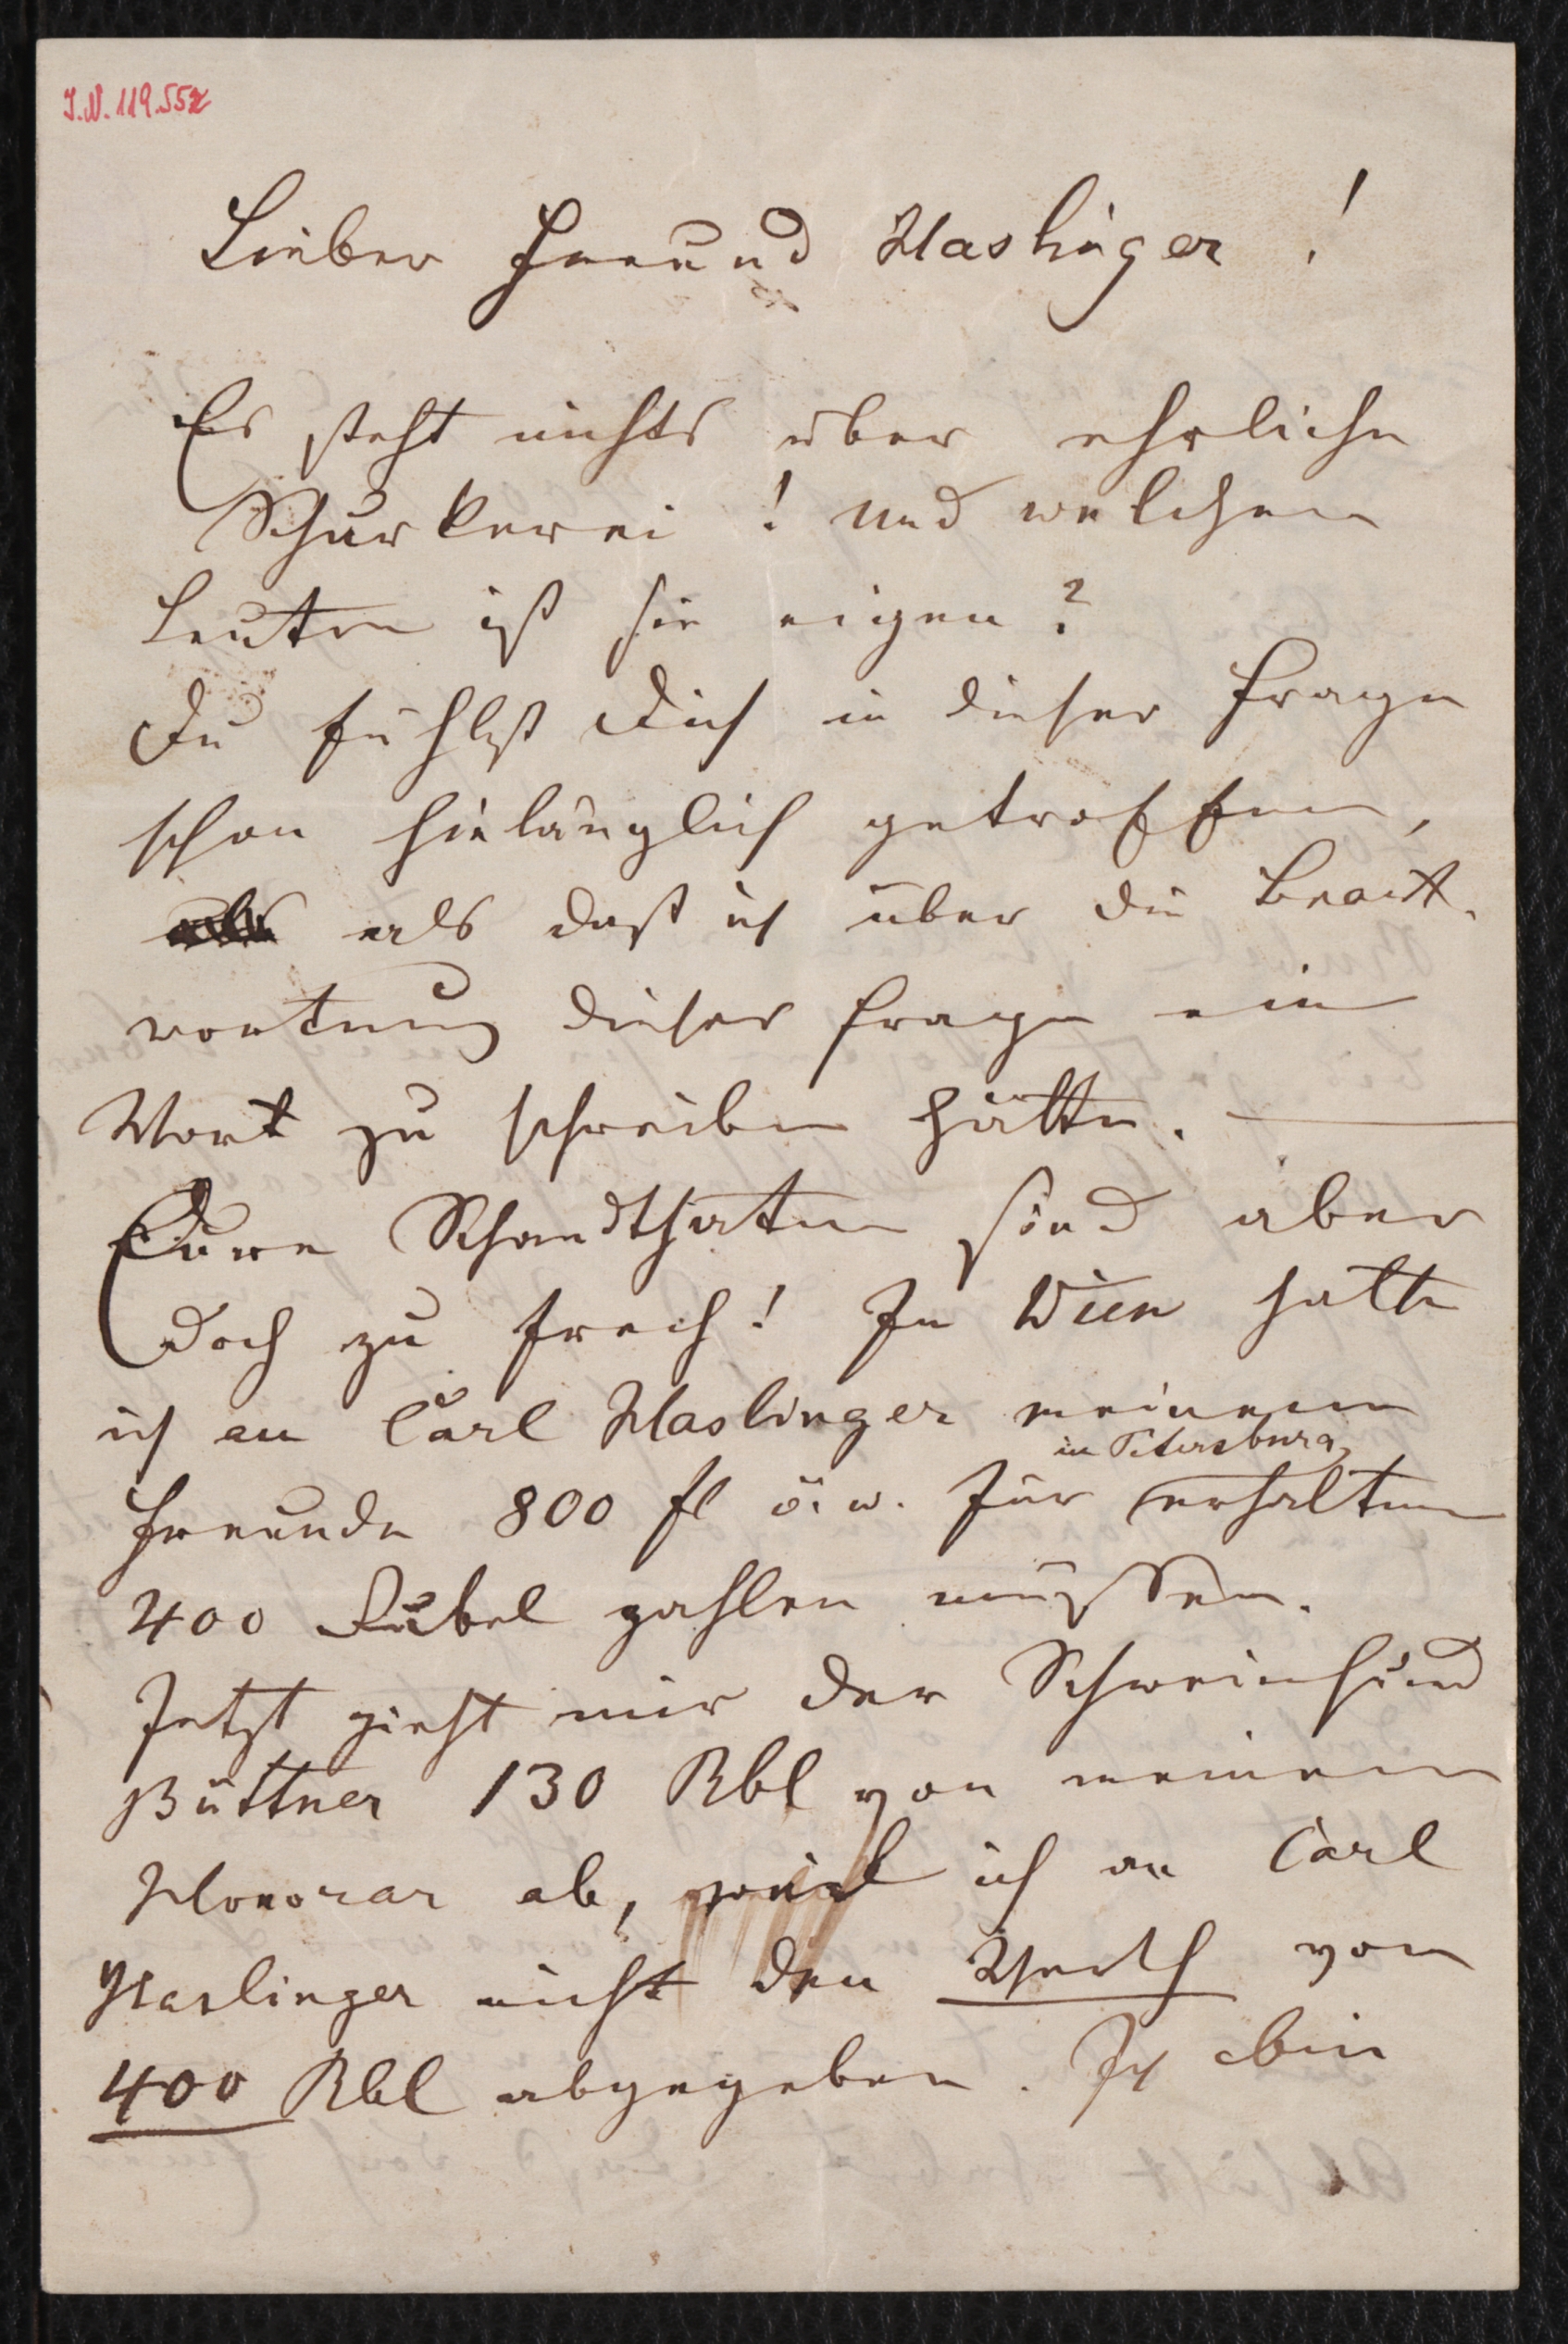 I.N. 119.552
Lieber Freund Haslinger!
Es steht nichts über ehrliche
Schurkerei! Und welchen
Leuten ist sie eigen?
Du fühlst Dich in dieser Frage
schon hinlänglich getroffen,
als daß ich über die Beant-
wortung dieser Frage ein
Wort zu schreiben hätte. —
Eure Schandthaten sind aber
doch zu frech! In Wien hatte
ich an Carl Haslinger meinem
in Petersburg
Freunde 800 fl ö. w. für erhaltene
400 Rubel zahlen müssen.
Jetzt zieht mir der Schweinhund
Büttner 130 Rbl von meinem
Honorar ab, weil ich an Carl
Haslinger nicht den Werth von
400 Rbl abgegeben. Ich bin